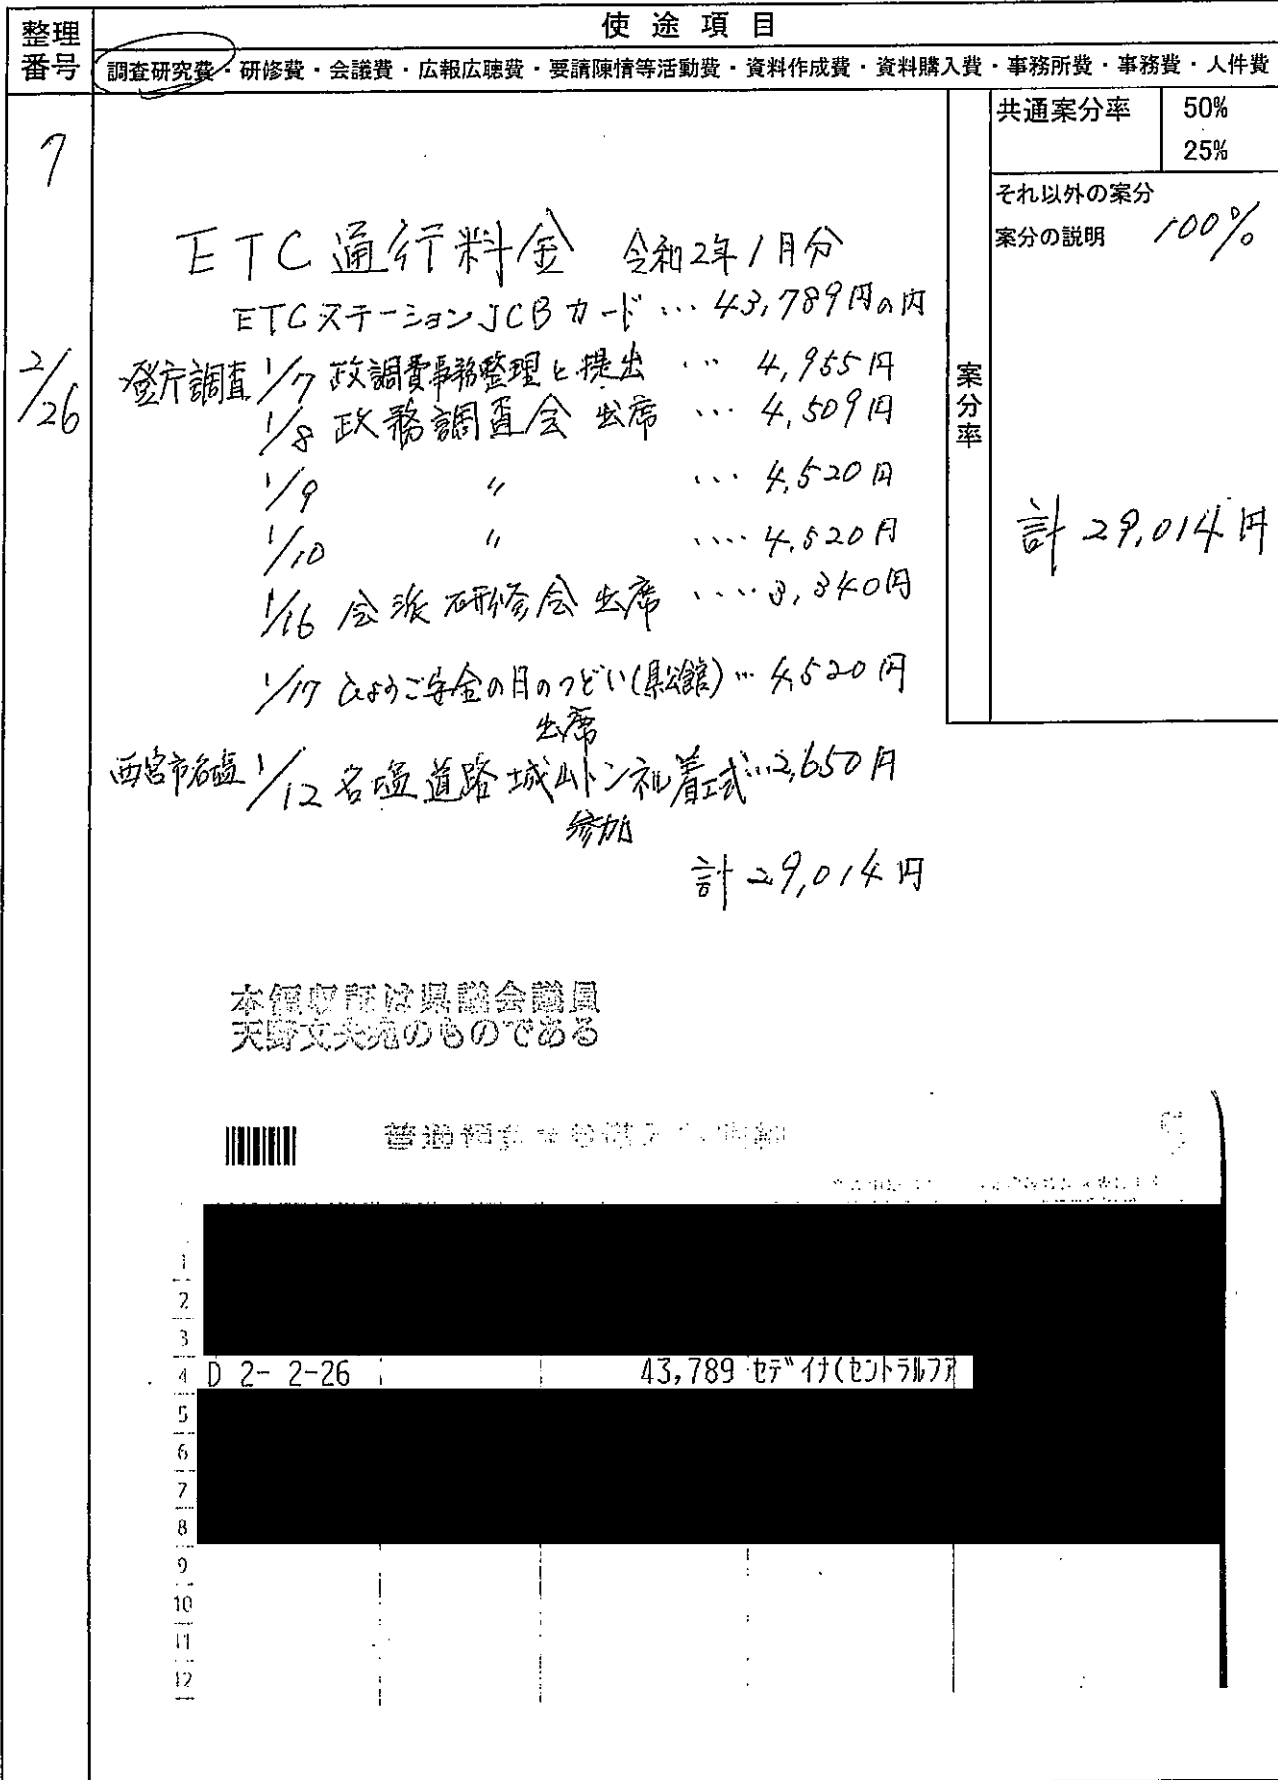 整理番号
使途項目
調査研究費・研修費・会議費・広報広聴費・要請陳情等活動費・資料作成費・資料購入費・事務所費・事務費・人件費
7
共通案分率 50%
25%
それ以外の案分
案分の説明 100%
案分率
計 29,014円
ETC通行料金 令和2年1月分
ETCステーションJCBカード… 43,789円の内
2/26
登庁調査 1/7 政調費事務整理と提出 … 4,955円
1/8 政務調査会 出席 … 4,509円
1/9 〃 … 4,520円
1/10 〃 … 4,520円
1/16 会派研修会出席 … 3,340円
1/17 ひょうご安全の日のつどい(県公館)… 4,520円
出席
西宮市名塩 1/12 名塩道路城山トンネル着工式…2,650円
参加
計 29,014円
本領収証は県議会議員
天野文夫宛のものである
普通預金
1
2
3
4 D 2- 2-26 43,789 セデイナ(セントラルフア
5
6
7
8
9
10
11
12